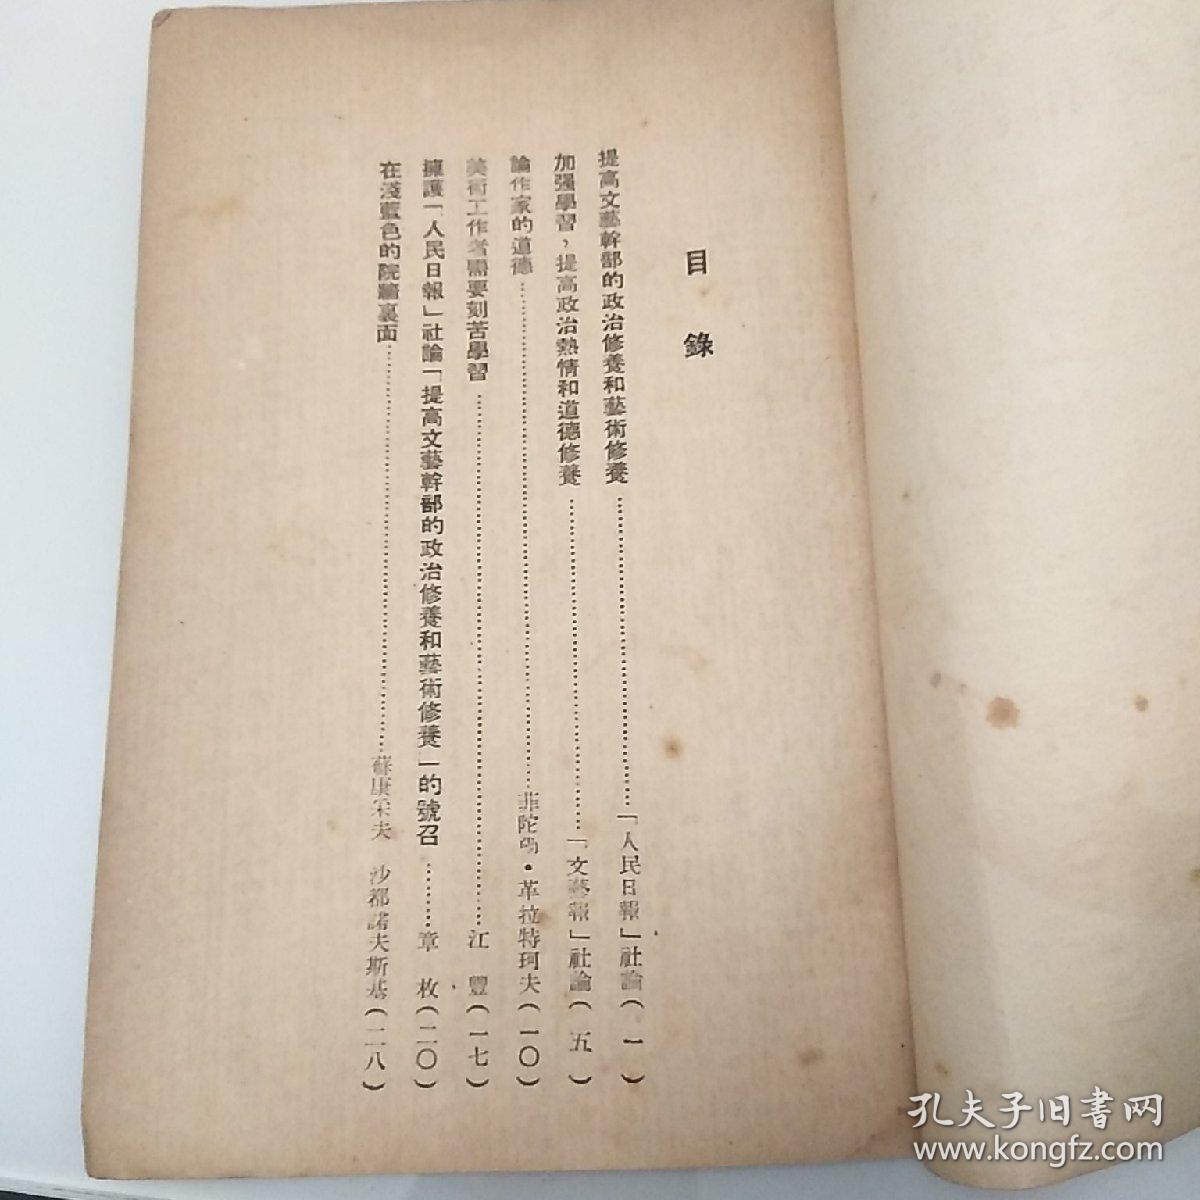 目錄
提高文藝幹部的政治修養和藝術修養……「人民日報」社論(一)
加强學習，提高政治熱情和道德修養……「文藝報」社論(五)
論作家的道德……菲陀·革拉特珂夫(一〇)
美術工作者需要刻苦學習……江豐(一七)
擁護「人民日報」社論「提高文藝幹部的政治修養和藝術修養」的號召……章枚(二〇)
在淺藍色的院牆裏面……蘇庚夫 沙都諾夫斯基(二八)
孔夫子旧书网
www.kongfz.com